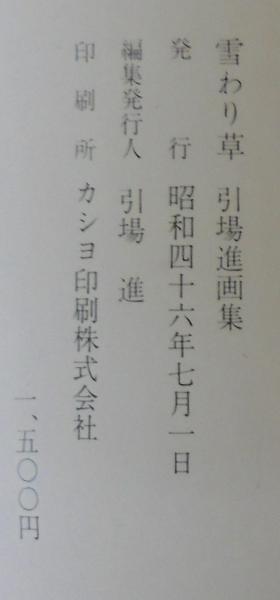 雪わり草 引場進画集
発行 昭和四十六年七月一日
編集発行人 引場 進
印刷所 カシヨ印刷株式会社
一、五〇〇円